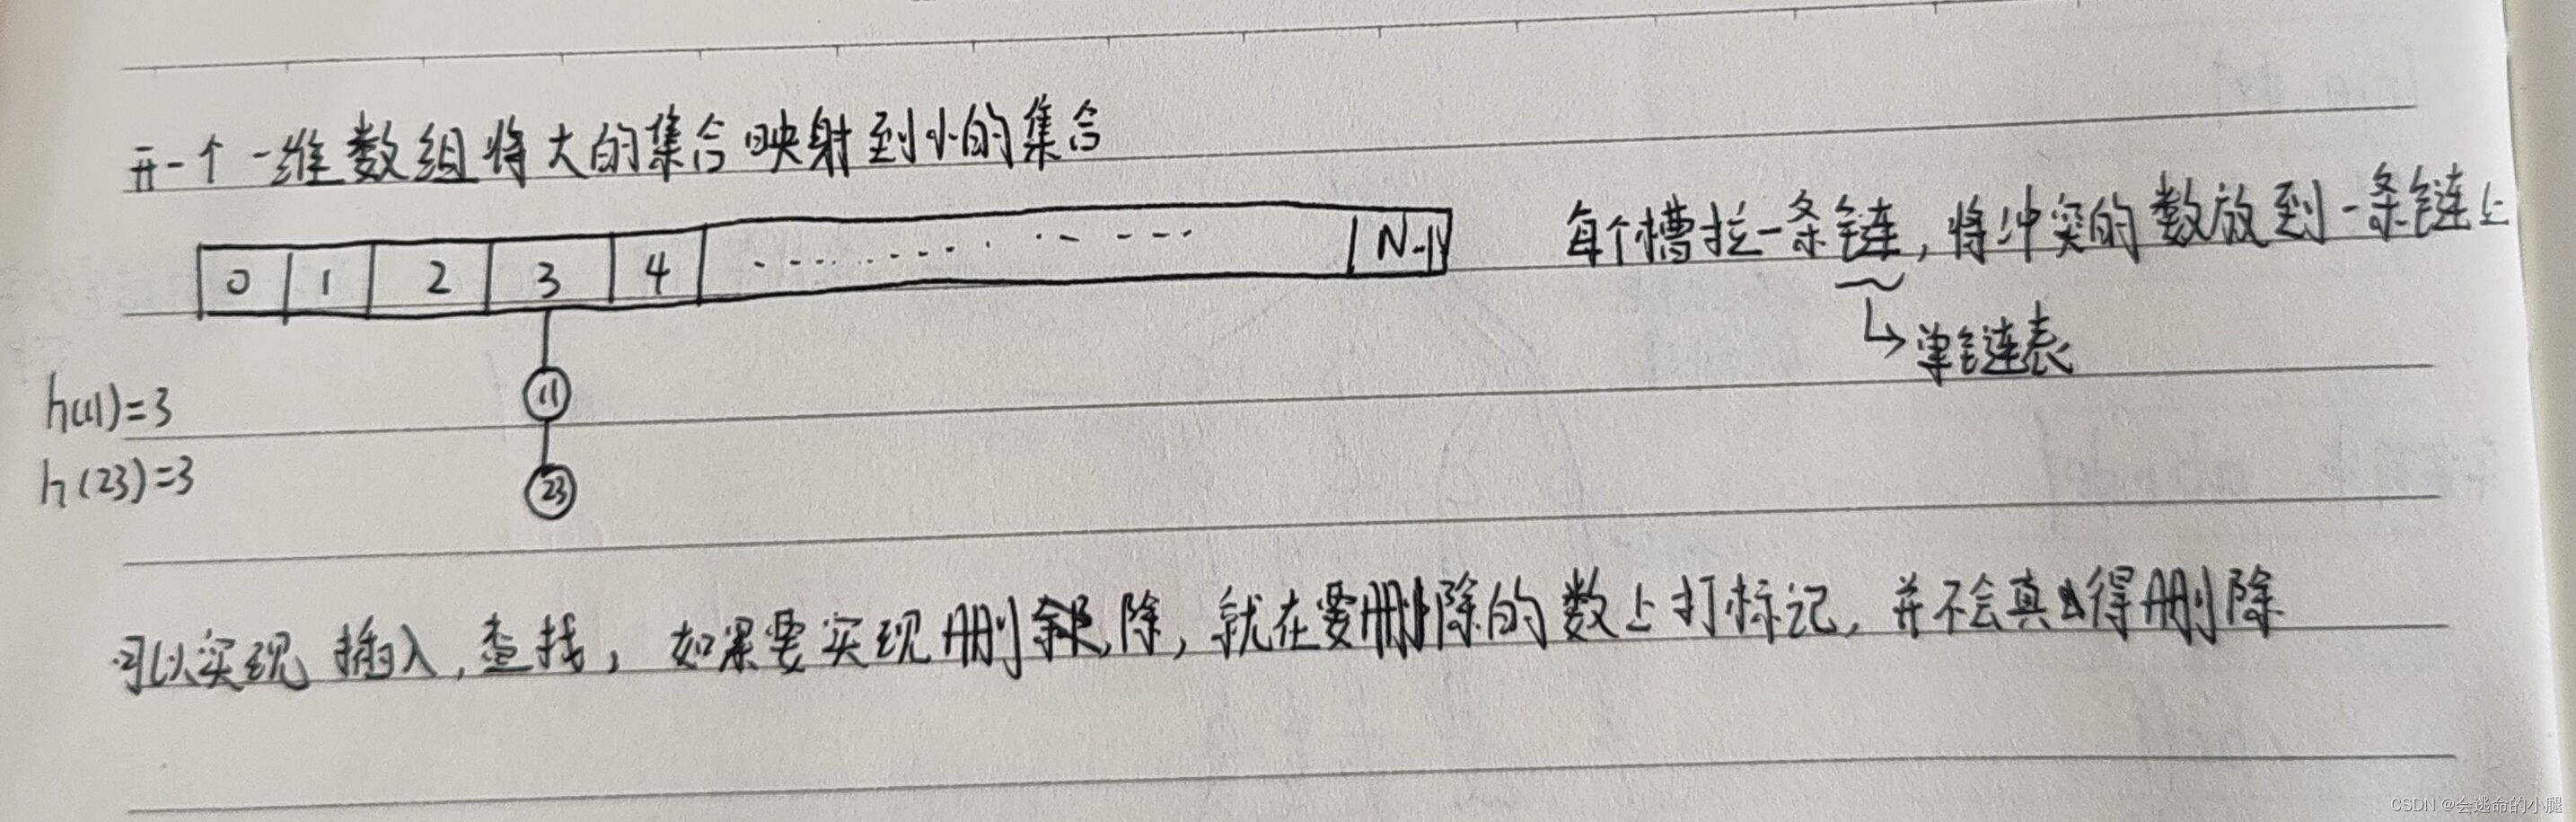 开一个一维数组将大的集合映射到小的集合
0 1 2 3 4 ........ N-1
每个槽拉一条链,将冲突的数放到一条链上
单链表
h(11)=3
11
h(23)=3
23
可以实现 插入,查找,如果要实现删除,就在要删除的数上打标记,并不会真得删除
CSDN @会逃命的小腿